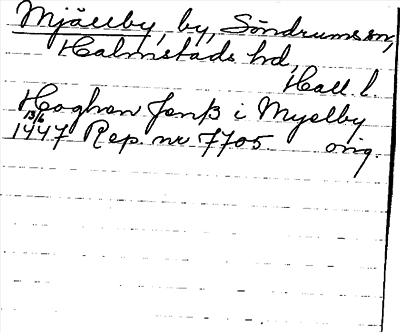 Mjällby, by, Söndrums sn,
Halmstads hd,
Hall. l.
Haghen Jenß i Myelby
13/6 1447 Rep. nr 7705. orig.